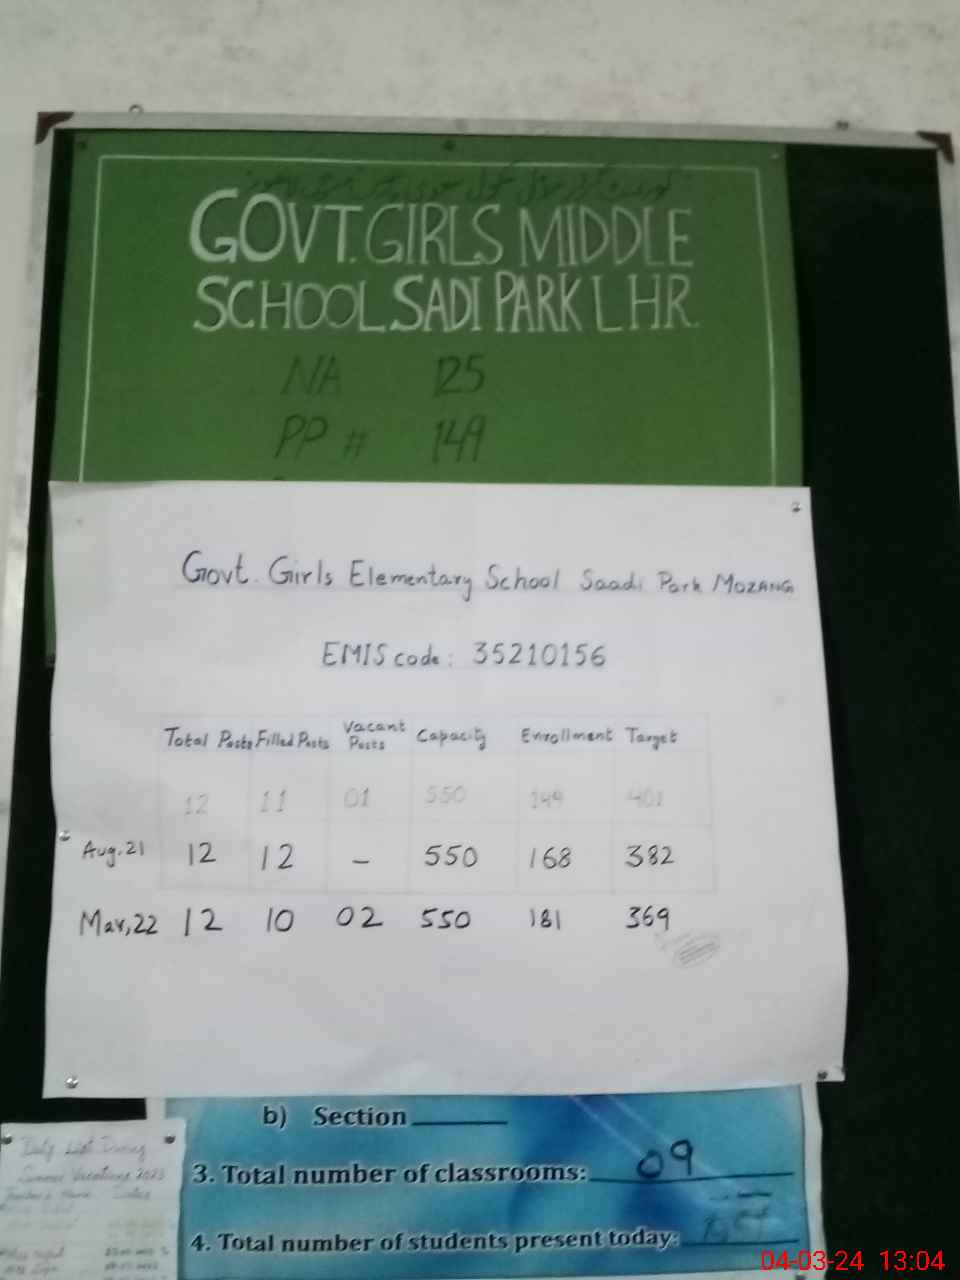 GOVT. GIRLS MIDDLE
SCHOOL SADI PARK LHR.
NA 125
PP # 149
Govt. Girls Elementary School Saadi Park MOZANG
EMIS code: 35210156
Total Posts Filled Posts Vacant Posts Capacity Enrollment Target
12 11 01 550 149 401
Aug.21 12 12 - 550 168 382
Mar,22 12 10 02 550 181 369
b) Section
3. Total number of classrooms: 09
4. Total number of students present today:
Duty List During
Summer Vacations 2023
04-03-24 13:04